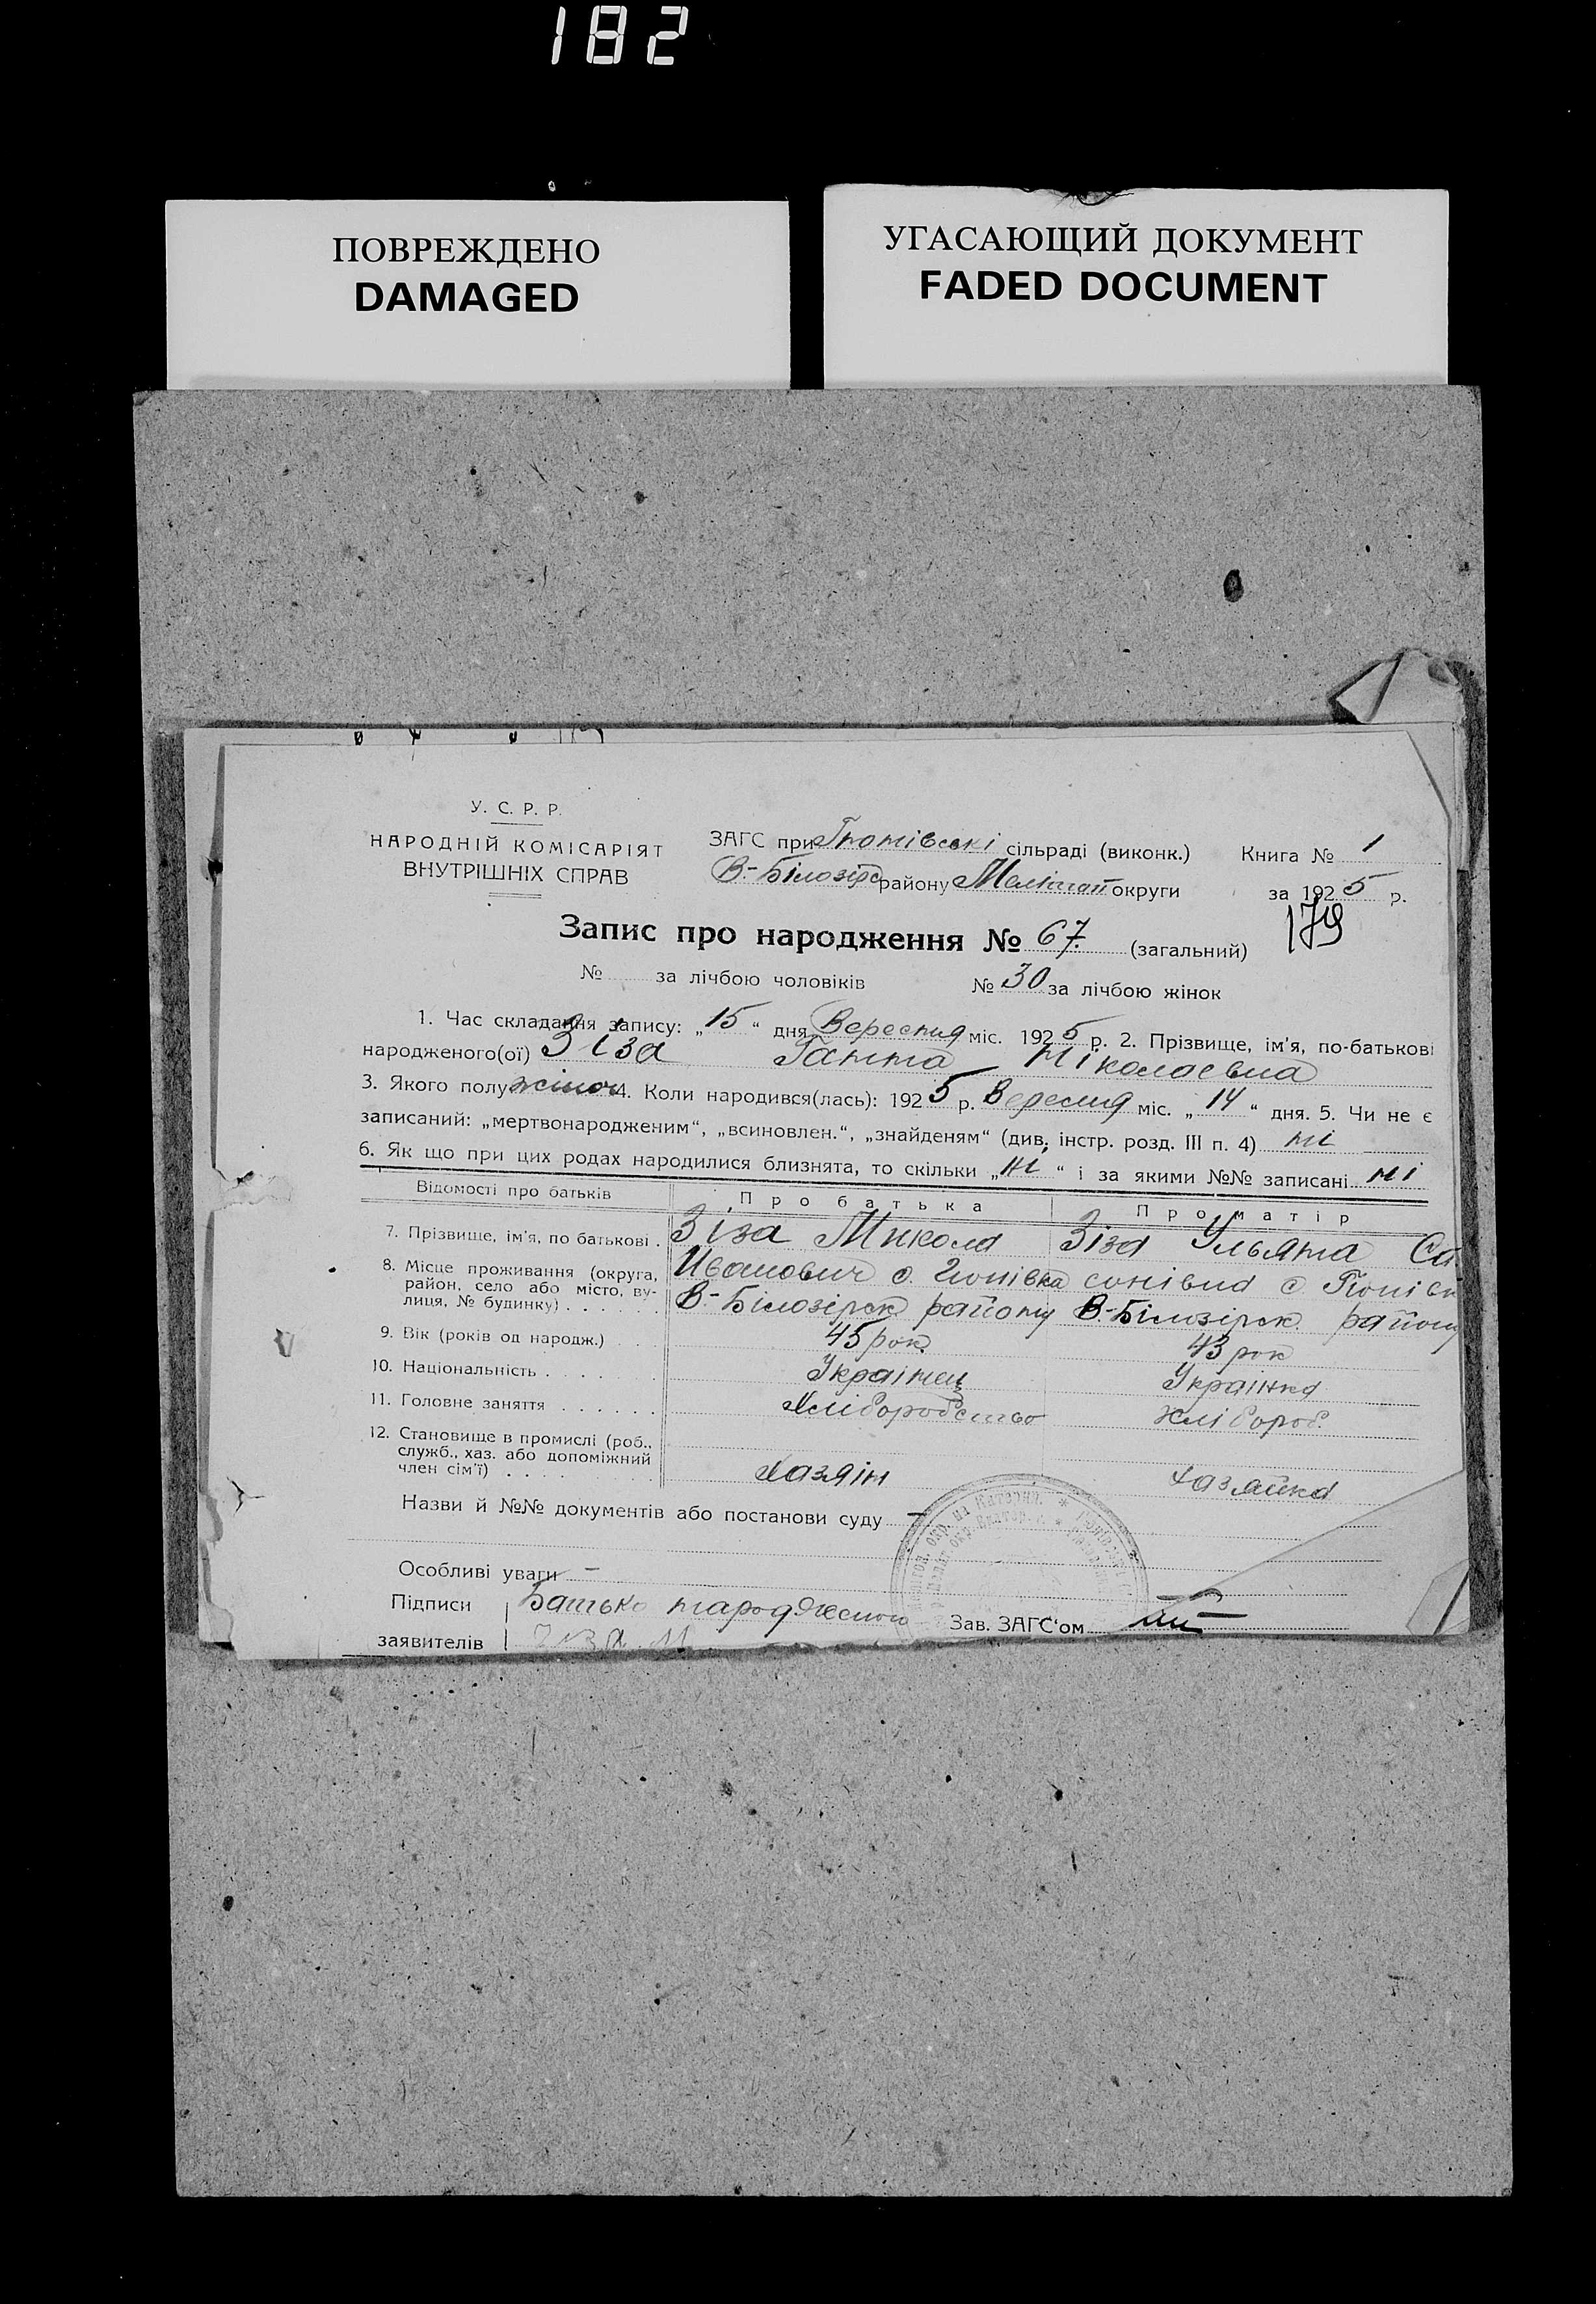 182
ПОВРЕЖДЕНО
DAMAGED
УГАСАЮЩИЙ ДОКУМЕНТ
FADED DOCUMENT
У. С. Р. Р.
НАРОДНІЙ КОМІСАРІЯТ
ВНУТРІШНІХ СПРАВ
ЗАГС при сільраді (виконк.) Книга № 1
В.-Білозірс району Меліт округи за 1925 р.
179
Запис про народження № 67. (загальний)
№ за лічбою чоловіків № 30 за лічбою жінок
1. Час складання запису: „15“ дня Вересня міс. 1925 р. 2. Прізвище, ім'я, по-батькові
народженого(ої) Зіза Ганна Міколаевна
3. Якого полу жіноч 4. Коли народився(лась): 1925 р. Вересня міс. „14“ дня. 5. Чи не є
записаний: „мертвонародженим“, „всиновлен.“, „знайденям“ (див. інстр. розд. III п. 4) ні
6. Як що при цих родах народилися близнята, то скільки „ні“ і за якими №№ записані ні
Відомості про батьків Про батька Про матір
7. Прізвище, ім'я, по батькові . Зіза Микола Зіза Ульяна Са-
8. Місце проживання (округа, район, село або місто, вулиця, № будинку) . . . . . . Иванович с. сонівна с
В.-Білозірск району В.-Білозірск. району
9. Вік (років од народж.) . . 45 рок. 43 рок
10. Національність . . . . . Українец Українка
11. Головне заняття . . . . . . Хліборобство Хлібороб.
12. Становище в промислі (роб., служб., хаз. або допоміжний член сім'ї) . . . . Хазяін Хазяйка
Назви й №№ документів або постанови суду —
Особливі уваги —
Підписи Батько народженого Зав. ЗАГС'ом
заявителів Зіза М